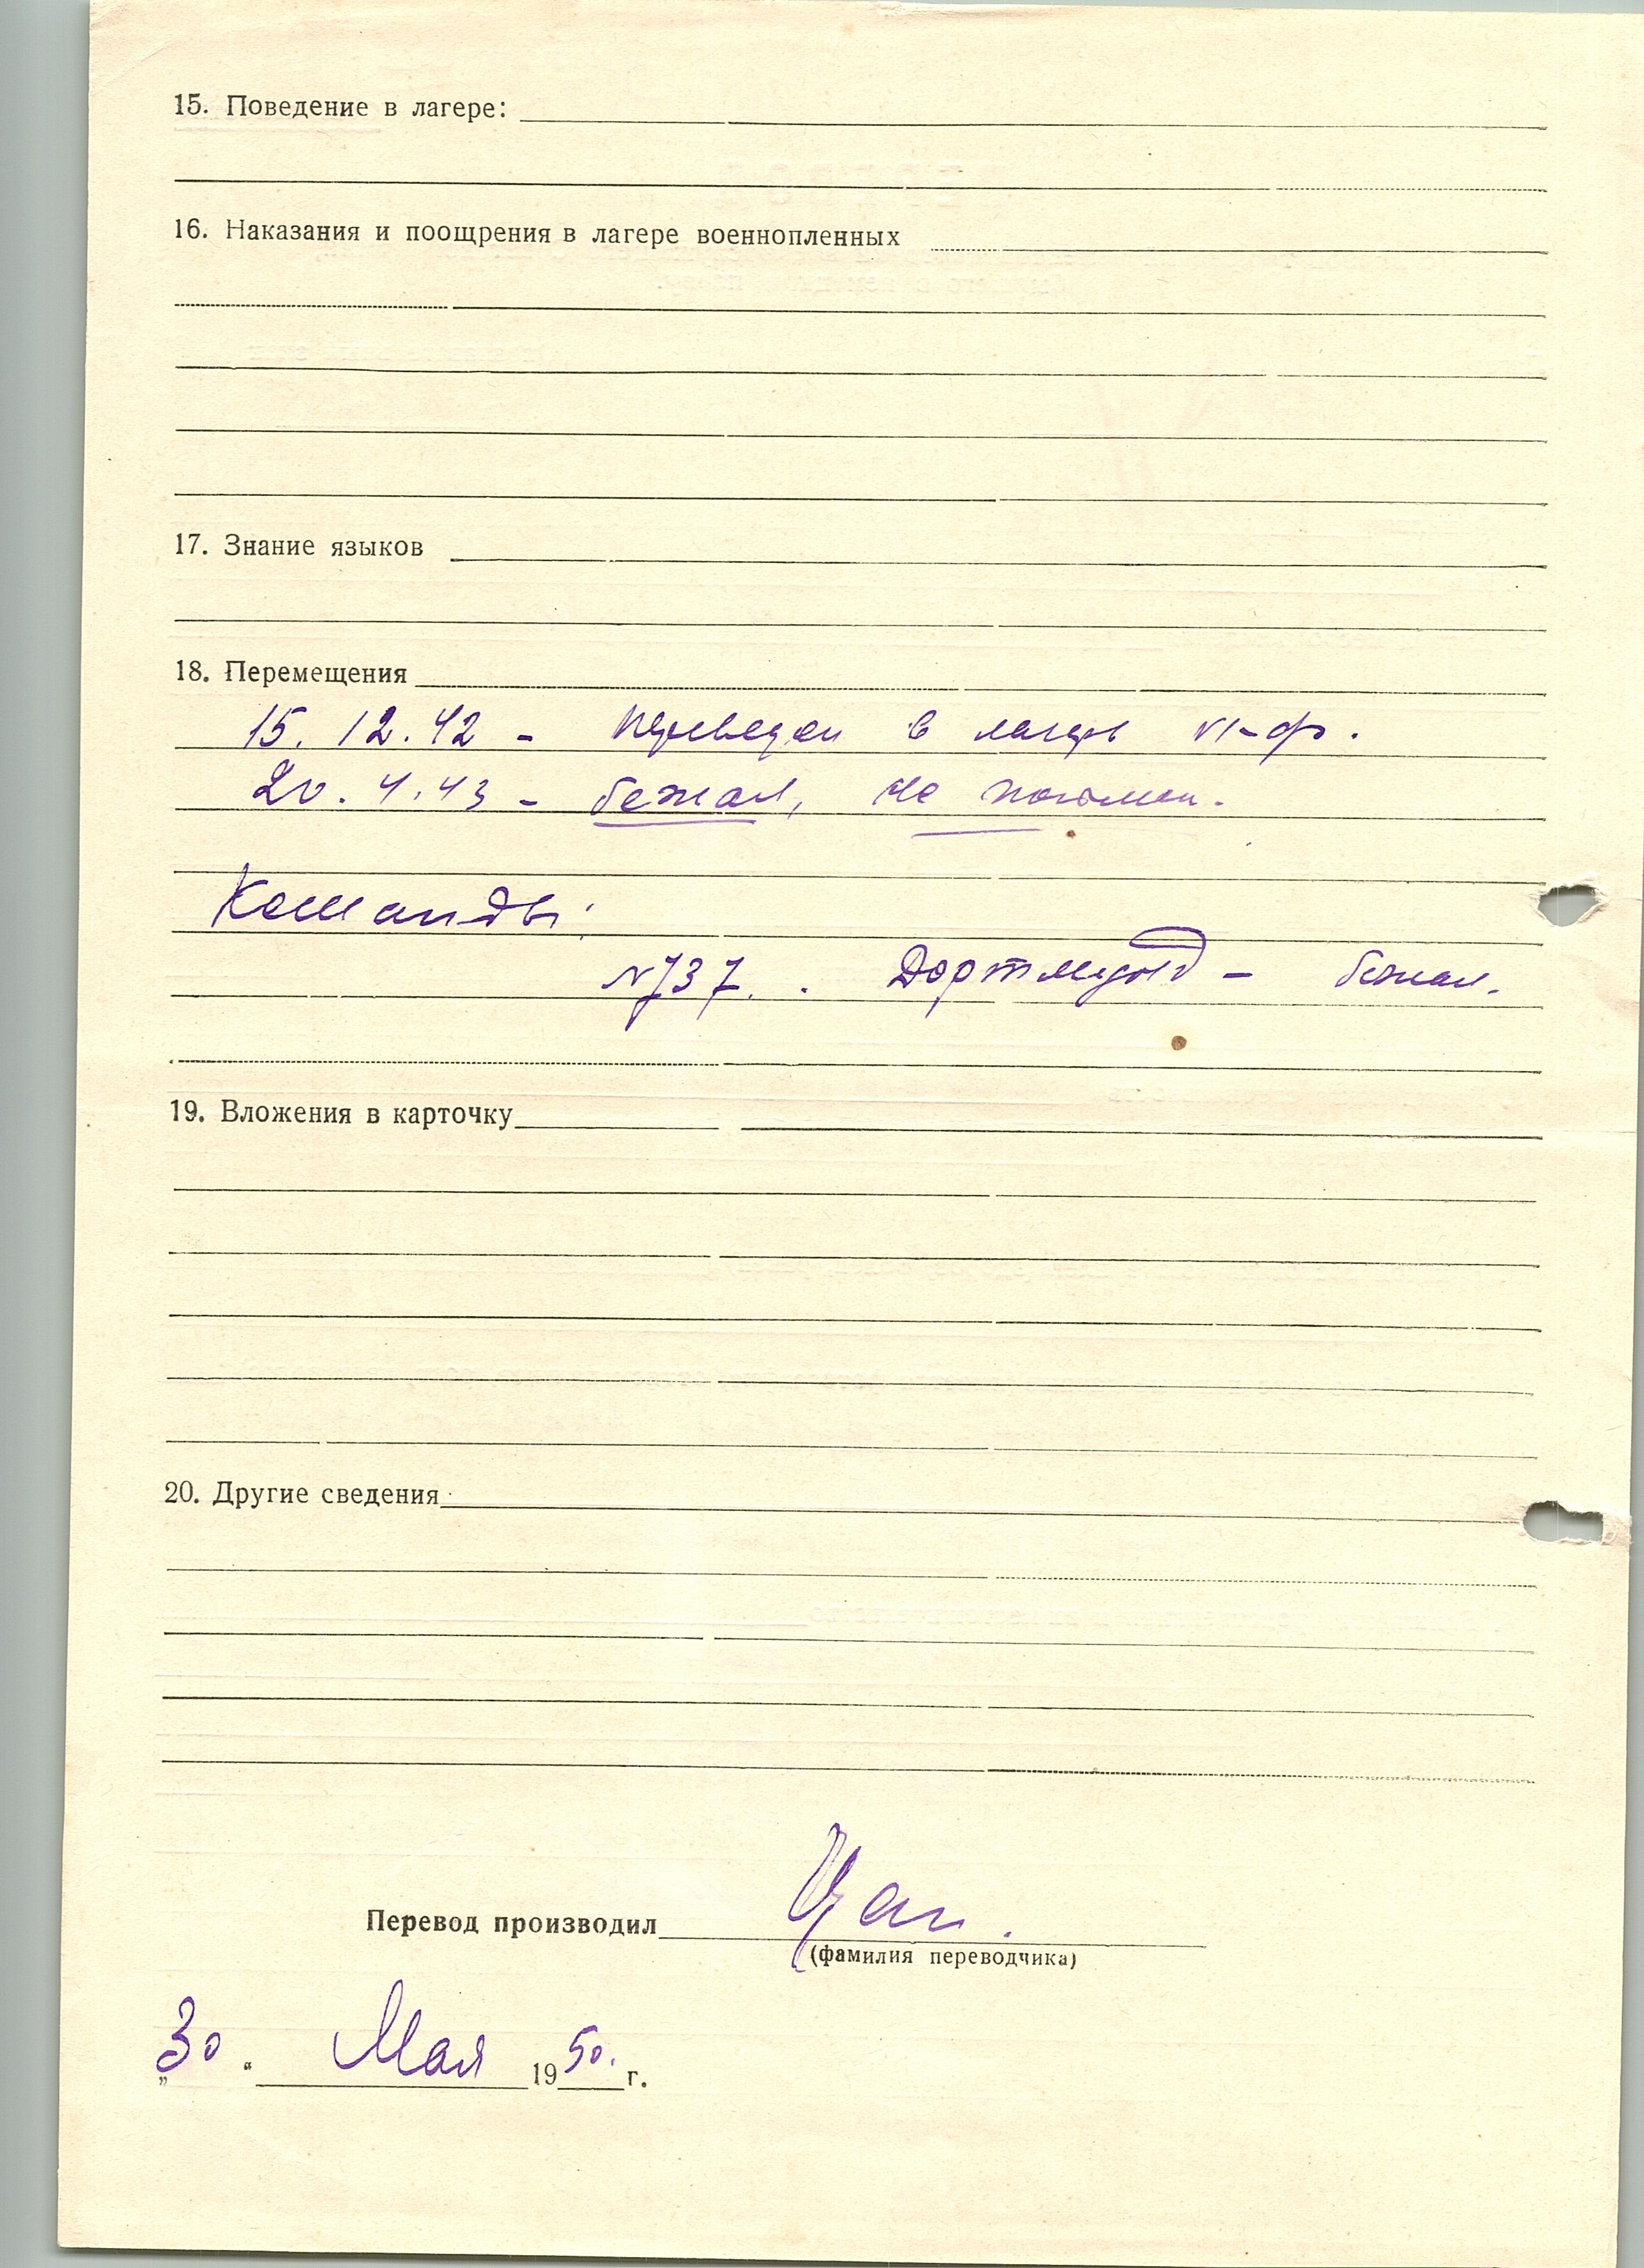 15. Поведение в лагере:
16. Наказания и поощрения в лагере военнопленных
17. Знание языков
18. Перемещения
15. 12. 42 - переведен в лагерь VI-ф.
20. 4. 43 - бежал, не пойман.
Команды:
N 737. Дортмунд - бежал.
19. Вложения в карточку
20. Другие сведения
Перевод производил
(фамилия переводчика)
„30“ Мая 1950 г.